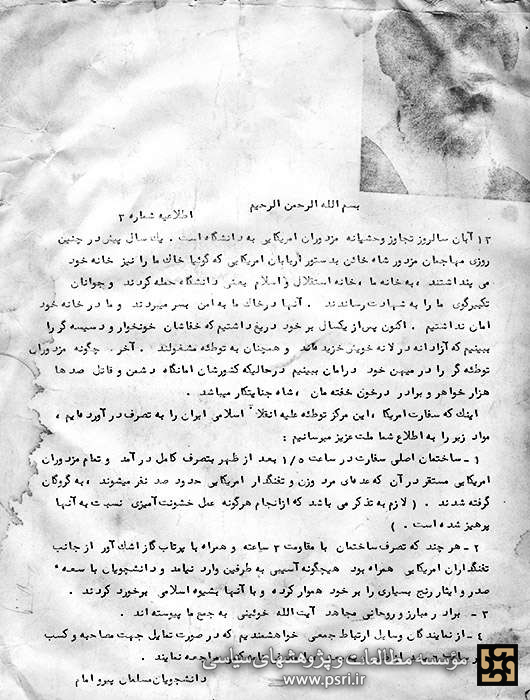 بسم الله الرحمن الرحیم
اطلاعیه شماره ۳
۱۳ آبان سالروز تجاوز وحشیانه مزدوران امریکایی به دانشگاه است . یک سال پیش در چنین
روزی مهاجمان مزدور شاه خائن بدستور اربابان امریکایی که گوئیا خاک ما را نیز خانه خود
می پنداشتند ، به خانه ما ، خانه استقلال و اسلام یعنی دانشگاه حمله کردند و جوانان
تکبیرگوی ما را به شهادت رساندند . آنها در خاک ما به امن بسر میبردند و ما در خانه خود
امان نداشتیم . اکنون پس از یکسال بر خود دریغ داشتیم که خفاشان خونخوار و دسیسه گر را
ببینیم که آزادانه در لانه خویش خزیده اند و همچنان به توطئه مشغولند . آخر . چگونه مزدوران
توطئه گر را در میهن خود در امان ببینیم در حالیکه کشورشان امانگاه دشمن و قاتل صدها
هزار خواهر و برادر در خون خفته مان ، شاه جنایتکار میباشد .
اینک که سفارت امریکا ، این مرکز توطئه علیه انقلاب اسلامی ایران را به تصرف در آورده ایم ،
مواد زیر را به اطلاع شما ملت عزیز میرسانیم :
۱ - ساختمان اصلی سفارت در ساعت ۱/۵ بعد از ظهر بتصرف کامل در آمد و تمام مزدوران
امریکایی مستقر در آن که عده ای مرد وزن و تفنگدار امریکایی حدود صد نفر میشوند ، به گروگان
گرفته شدند . ( لازم به تذکر می باشد که از انجام هرگونه عمل خشونت آمیزی نسبت به آنها
پرهیز شده است . )
۲ - هر چند که تصرف ساختمان با مقاومت ۳ ساعته و همراه با پرتاب گاز اشک آور از جانب
تفنگداران امریکایی همراه بود هیچگونه آسیبی به طرفین وارد نیامد و دانشجویان با سعه
صدر و ایثار رنج بسیاری را بر خود هموار کرده و با آنها بشیوه اسلامی برخورد کردند .
۳ - برادر مبارز و روحانی مجاهد آیت الله خوئینی به جمع ما پیوسته اند .
۴ - از نمایندگان وسایل ارتباط جمعی خواهشمندیم که در صورت تمایل جهت مصاحبه و کسب
مراجعه نمایند .
دانشجویان مسلمان پیرو امام
موسسه مطالعات و پژوهشهای سیاسی
www.psri.ir